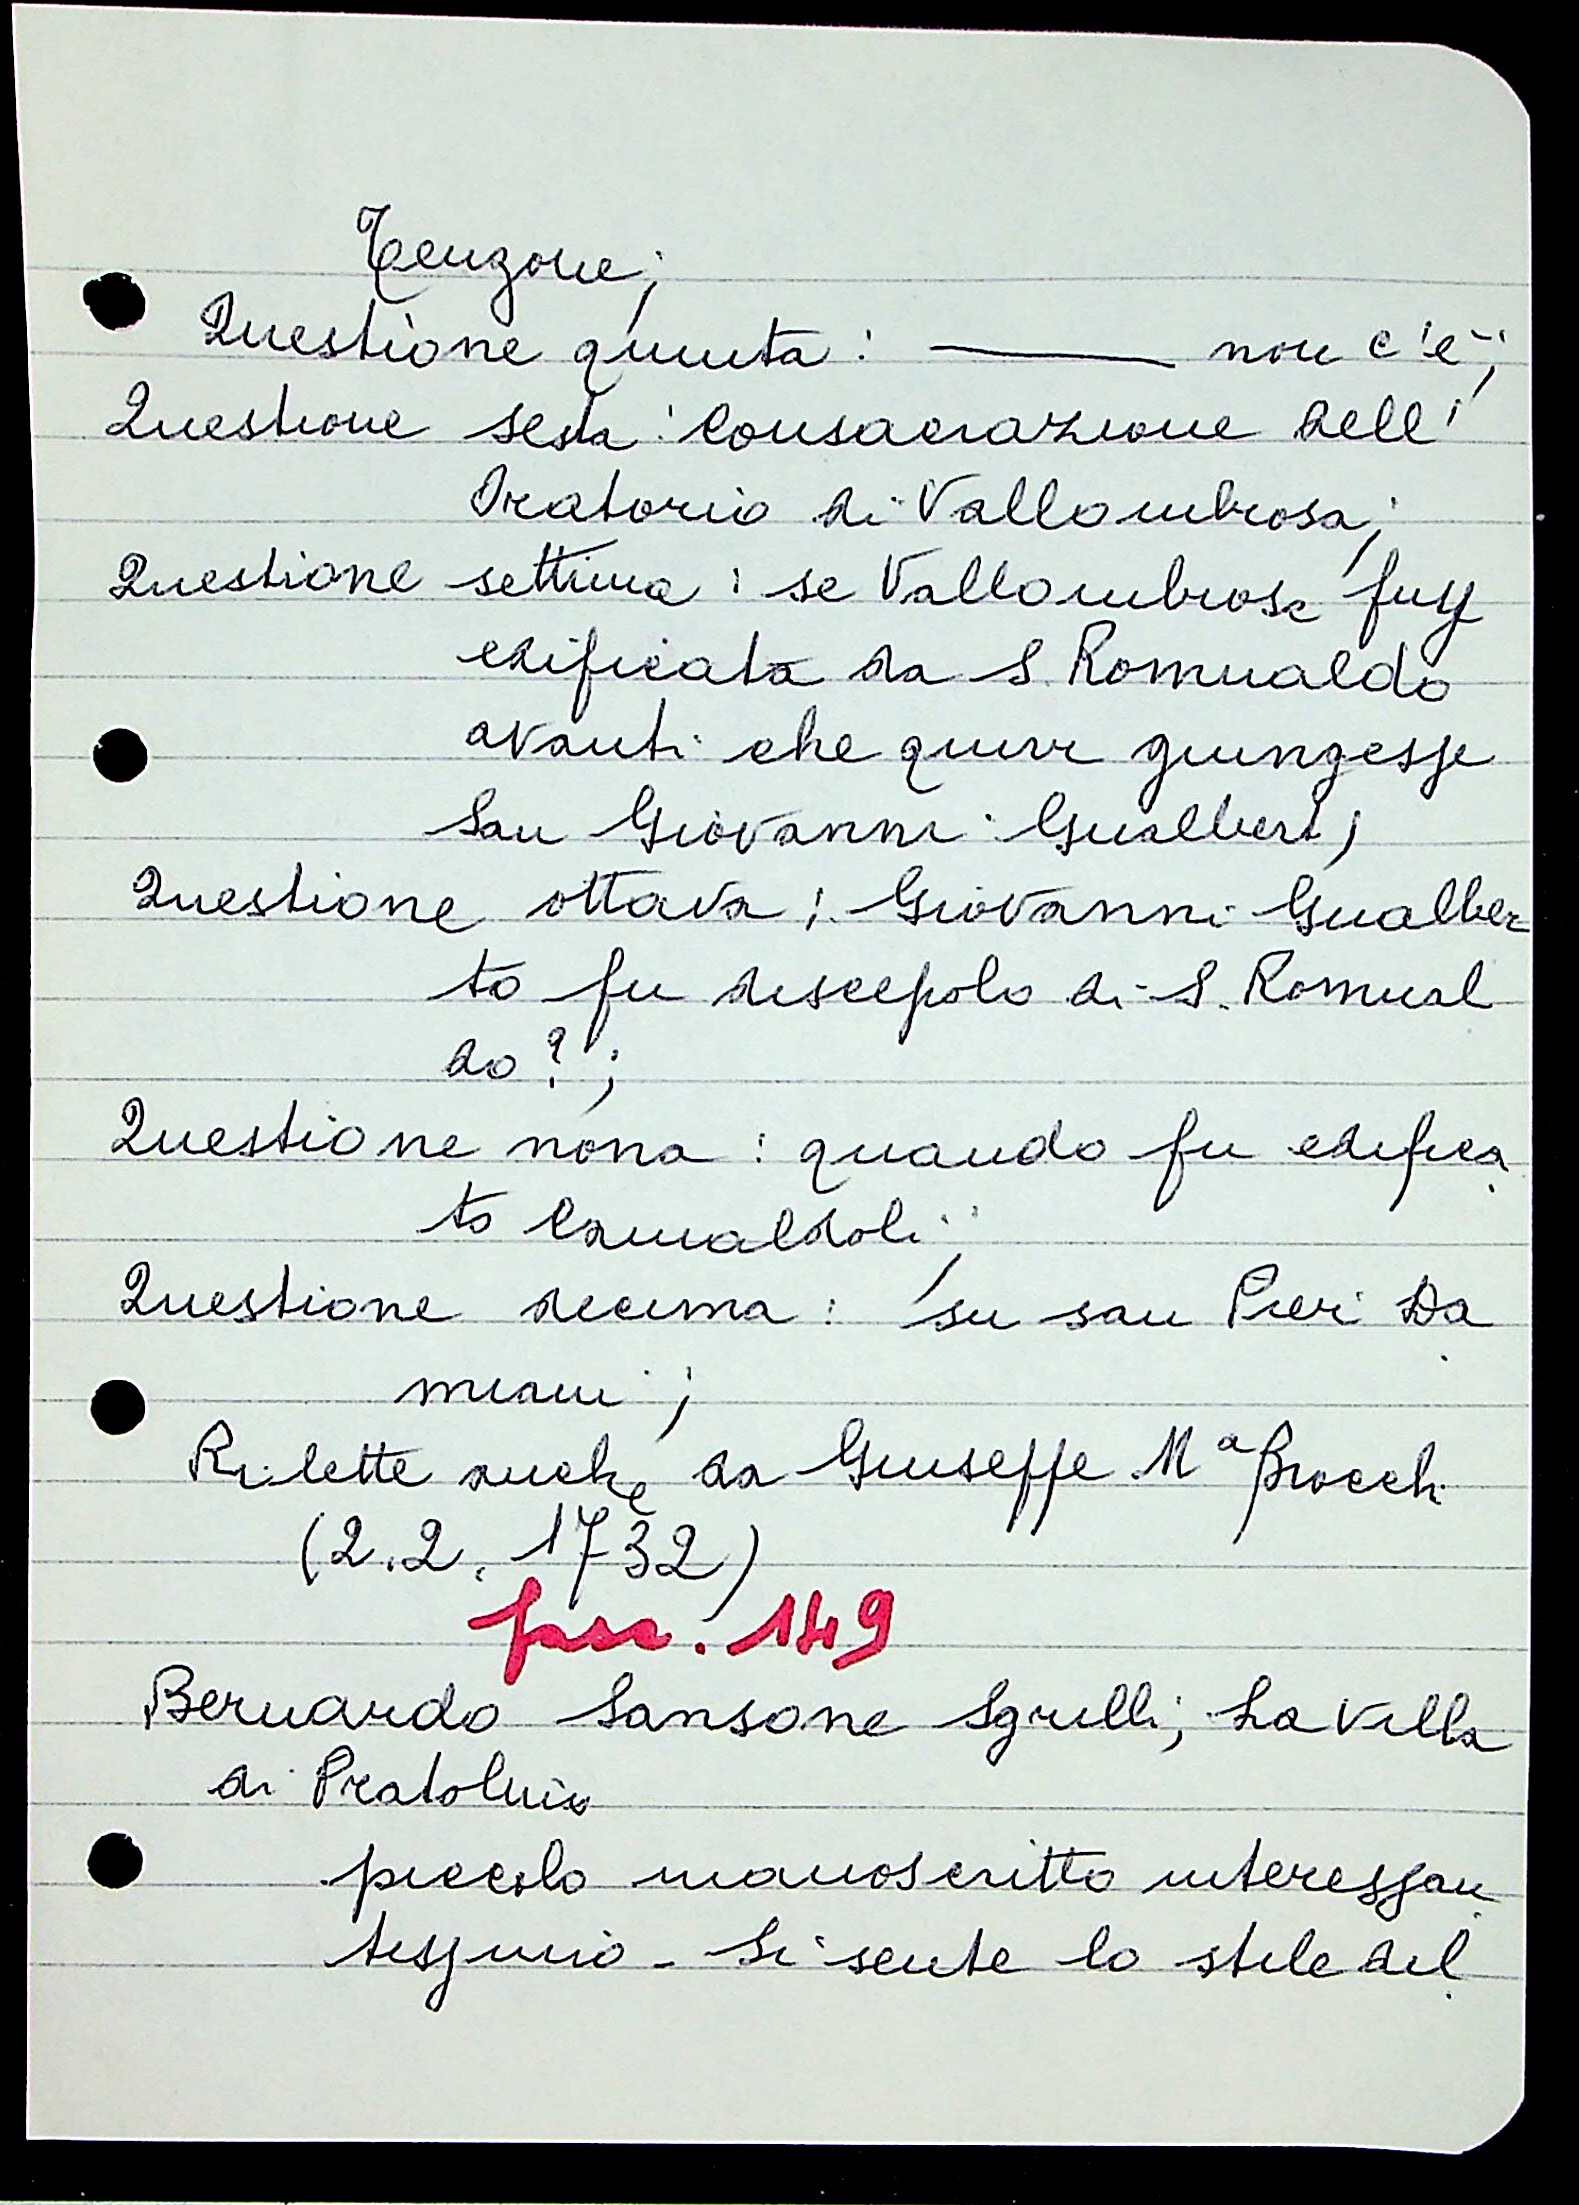 Tenzone;
Questione quinta: —— non c'è;
Questione sesta: Consacrazione dell'
Oratorio di Vallombrosa;
Questione settima: se Vallombrosa fuss
edificata da S. Romualdo
avanti che quivi giungesse
San Giovanni Gualbert;
Questione ottava: Giovanni Gualber
to fu discepolo di S. Romual
do?;
Questione nona: quando fu edifica
to Camaldoli;
Questione decima: su san Pier Da
miani;
Rilette anche da Giuseppe Mª Brocchi
(2.2.1732)
fasc. 149
Bernardo Sansone Sgrilli; La Villa
di Pratolino
piccolo manoscritto interessan
tissimo - Si sente lo stile del